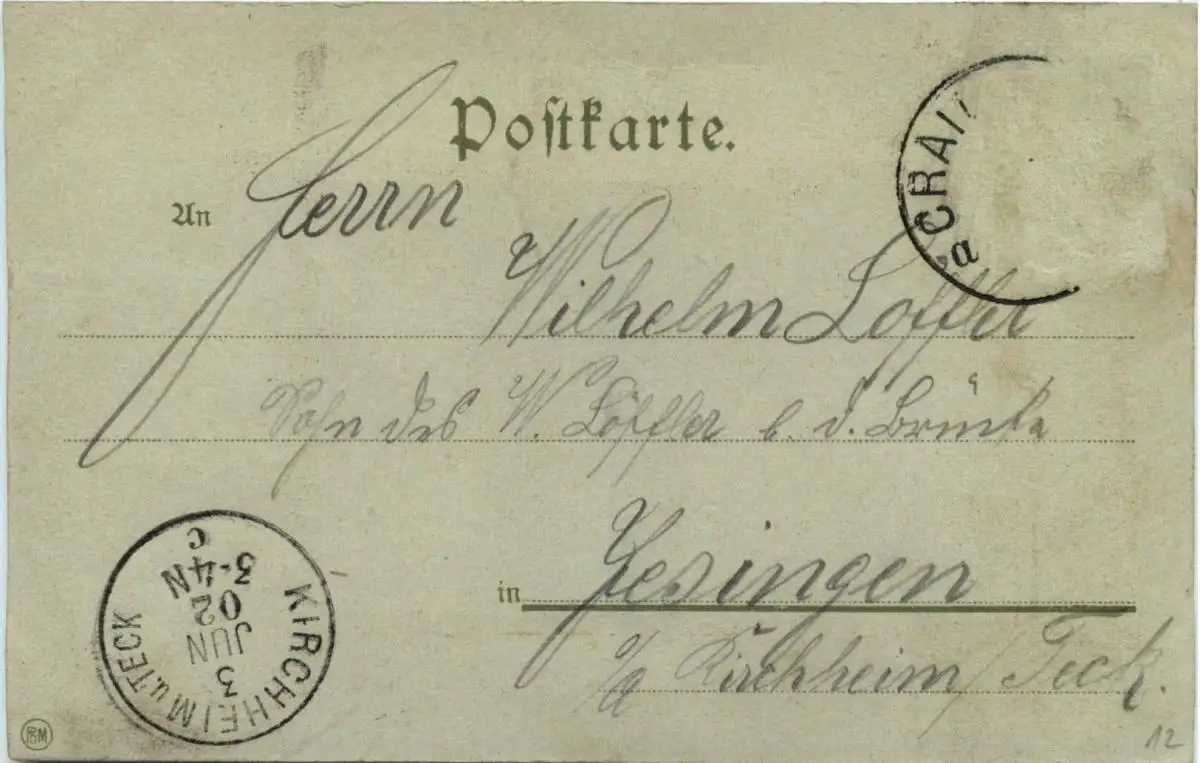 Postkarte.
CRAI
a
An Herrn
Wilhelm Löffler
Sohn des W. Löffler b. d. Brücke
in Jesingen
o/a Kirchheim / Teck.
KIRCHHEIM u. TECK
3
JUN
02
3-4N
c
12